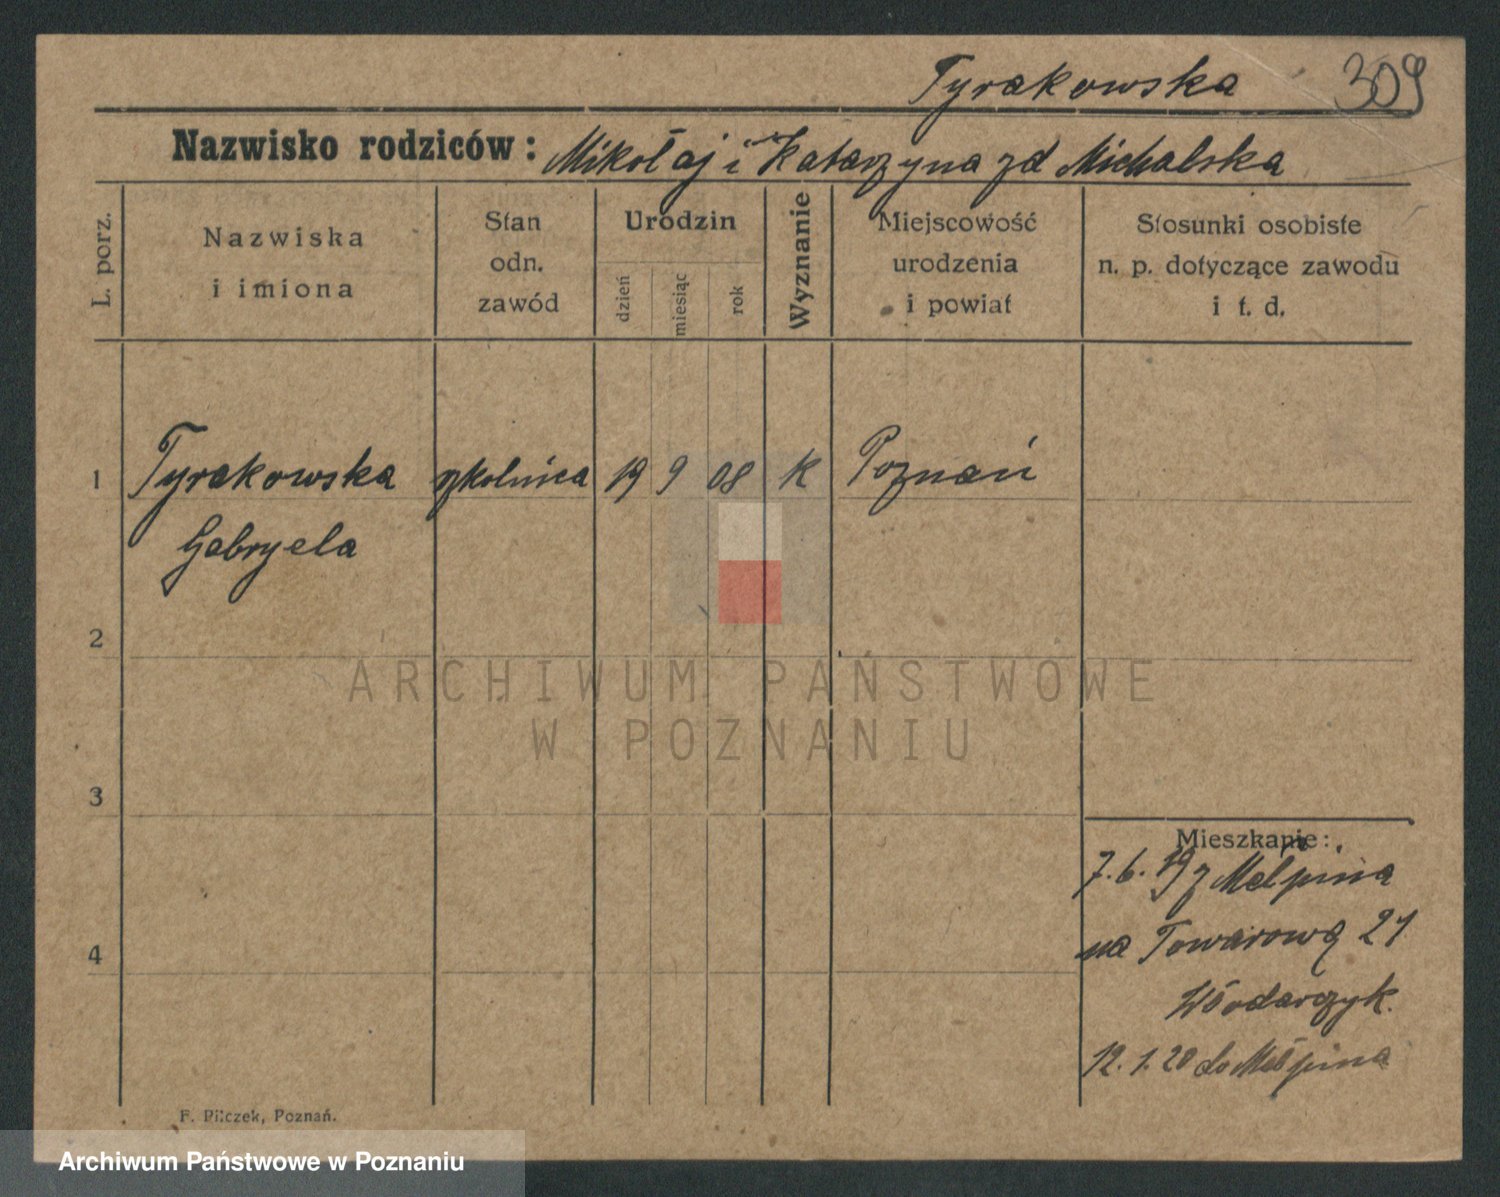 Tyrakowska 309
Nazwisko rodziców: Mikołaj i Katarzyna zd Michalska
L. porz.
Nazwiska
i imiona
Stan
odn.
zawód
Urodzin
dzień
miesiąc
rok
Wyznanie
Miejscowość
urodzenia
i powiat
Stosunki osobiste
n. p. dotyczące zawodu
i t. d.
1 Tyrakowska szkolnica 19 9 08 K Poznań
Gabryela
2
3
4
Mieszkanie:
7. 6. 19 z Mełpina
na Towarową 21
Włodarczyk.
12. 1. 20 do Mełpina
F. Pilczek, Poznań.
ARCHIWUM PAŃSTWOWE
W POZNANIU
Archiwum Państwowe w Poznaniu